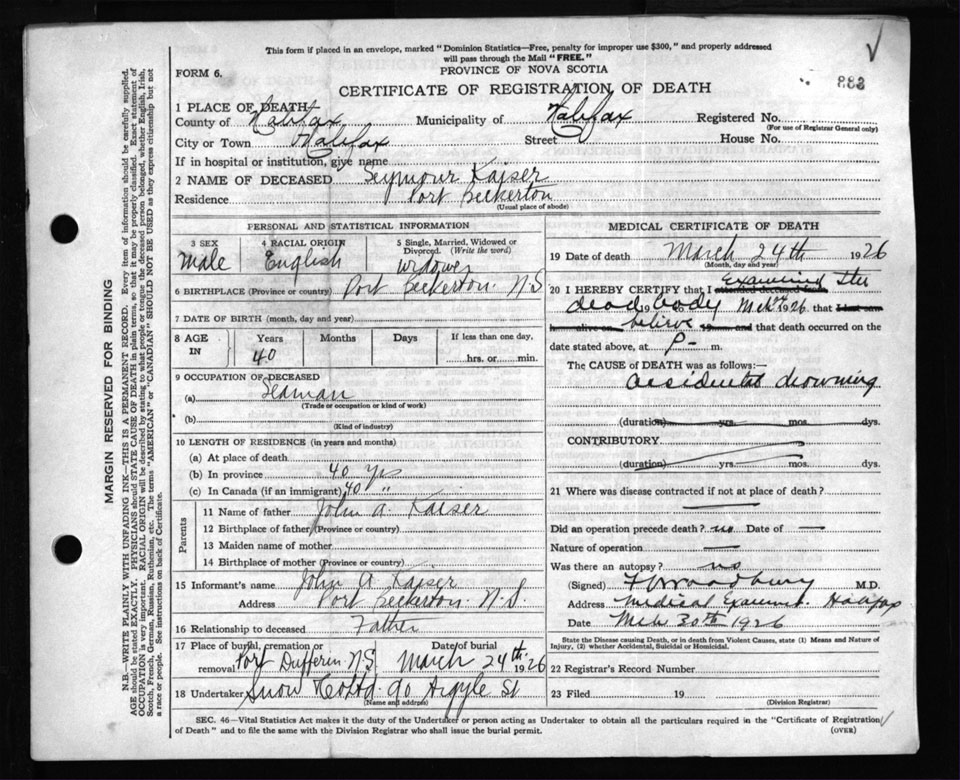 This form if placed in an envelope, marked "Dominion Statistics—Free, penalty for improper use $300," and properly addressed
will pass through the Mail "FREE."
PROVINCE OF NOVA SCOTIA
FORM 6.
883
CERTIFICATE OF REGISTRATION OF DEATH
1 PLACE OF DEATH
County of Halifax Municipality of Halifax Registered No.
(For use of Registrar General only)
City or Town Halifax Street House No.
If in hospital or institution, give name
2 NAME OF DECEASED Seymour Kaiser
Residence Port Beckerton
(Usual place of abode)
PERSONAL AND STATISTICAL INFORMATION
3 SEX 4 RACIAL ORIGIN 5 Single, Married, Widowed or Divorced. (Write the word)
male English Widower
6 BIRTHPLACE (Province or country) Port Beckerton. N.S
7 DATE OF BIRTH (month, day and year)
8 AGE IN Years Months Days If less than one day,
40 hrs. or min.
9 OCCUPATION OF DECEASED
(a) Seaman
(Trade or occupation or kind of work)
(b)
(Kind of industry)
10 LENGTH OF RESIDENCE (in years and months)
(a) At place of death
(b) In province 40 yrs
(c) In Canada (if an immigrant) 40 "
Parents
11 Name of father John A. Kaiser
12 Birthplace of father (Province or country)
13 Maiden name of mother
14 Birthplace of mother (Province or country)
15 Informant's name John A Kaiser
Address Port Beckerton. N.S.
16 Relationship to deceased Father
17 Place of burial, cremation or removal Date of burial
Port Dufferin N.S. March 24th 1926
18 Undertaker Snow & Co Ltd. 90 Argyle St
(Name and address)
MEDICAL CERTIFICATE OF DEATH
19 Date of death March 24th 1926
(Month, day and year)
20 I HEREBY CERTIFY that I attended deceased from examined the
dead body 19 to Mch 1926 that I last saw
alive on believe 19 and that death occurred on the
date stated above, at P- m.
The CAUSE of DEATH was as follows:—
accidental drowning
(duration) yrs. mos. dys.
CONTRIBUTORY
(duration) yrs. mos. dys.
21 Where was disease contracted if not at place of death?
Did an operation precede death? no Date of —
Nature of operation —
Was there an autopsy? no
(Signed) F Woodbury M.D.
Address Medical Examiner. Halifax
Date Mch 30th 1926
State the Disease causing Death, or in death from Violent Causes, state (1) Means and Nature of
Injury, (2) whether Accidental, Suicidal or Homicidal.
22 Registrar's Record Number
23 Filed 19
(Division Registrar)
SEC. 46—Vital Statistics Act makes it the duty of the Undertaker or person acting as Undertaker to obtain all the particulars required in the "Certificate of Registration
of Death" and to file the same with the Division Registrar who shall issue the burial permit.
(OVER)
MARGIN RESERVED FOR BINDING
N.B.—WRITE PLAINLY WITH UNFADING INK—THIS IS A PERMANENT RECORD. Every item of information should be carefully supplied.
AGE should be stated EXACTLY. PHYSICIANS should STATE CAUSE OF DEATH in plain terms, so that it may be properly classified. Exact statement of
OCCUPATION is very important. RACIAL ORIGIN will be described by stating to what people or tongue the deceased person belonged, whether English, Irish,
Scotch, French, German, Russian, Ruthenian, etc. The terms "AMERICAN" or "CANADIAN" SHOULD NOT BE USED as they express citizenship but not
a race or people. See instructions on back of Certificate.